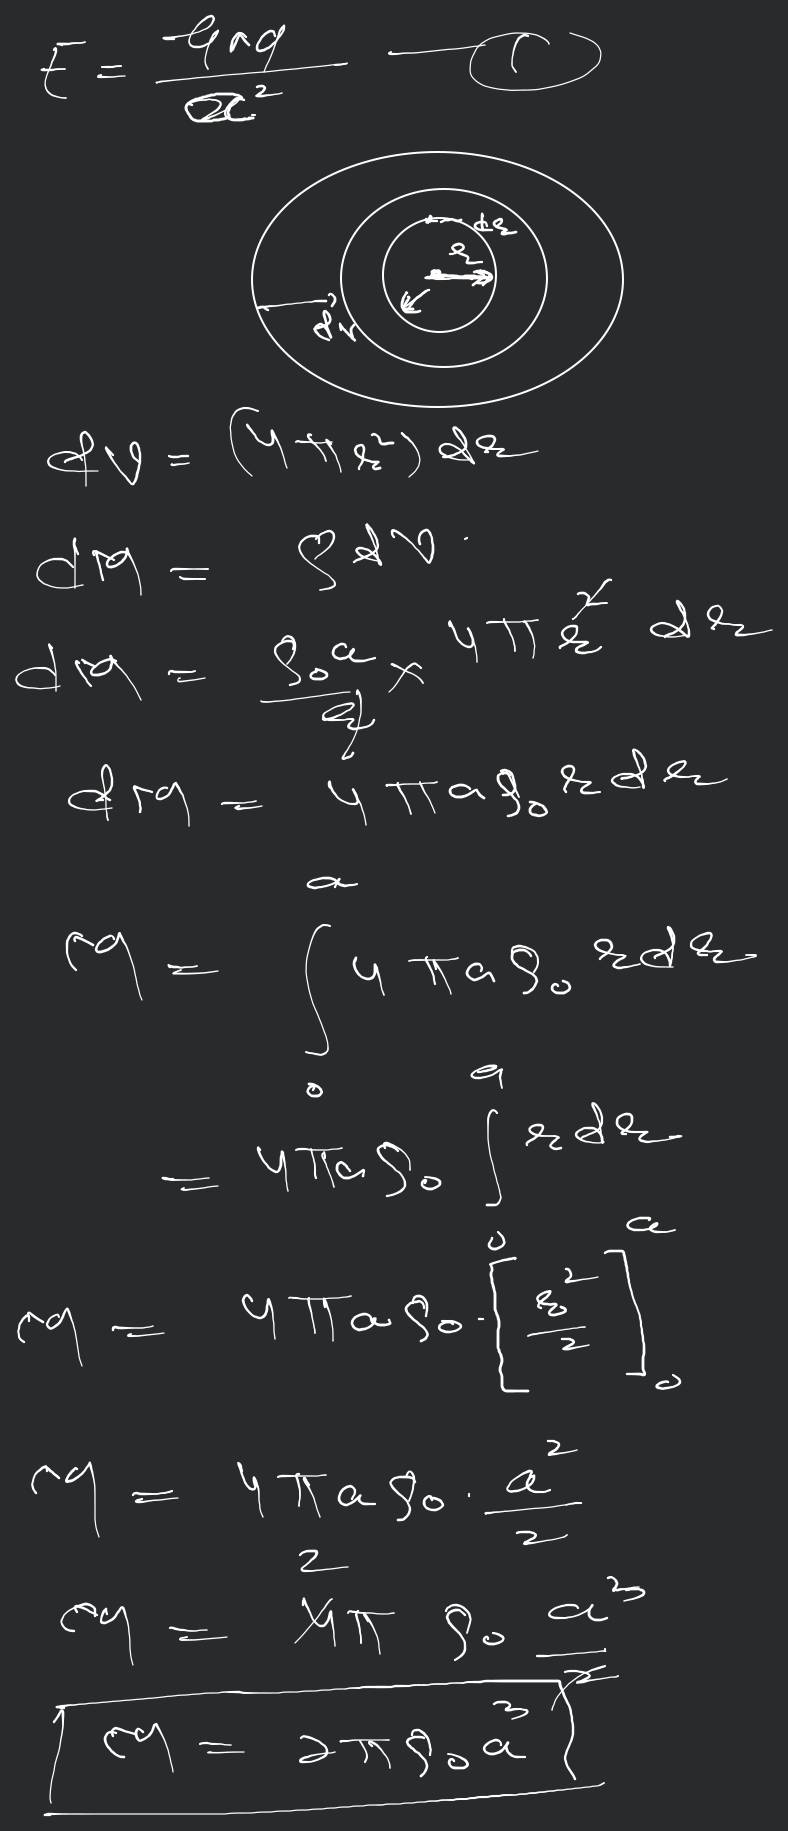 E = GM/x² — (1)
dr
r
dr
dV = (4πr²) dr
dM = ρdV.
dM = ρ₀a/r × 4πr² dr
dM = 4πaρ₀ r dr
M = ∫₀ᵃ 4πaρ₀ r dr
= 4πaρ₀ ∫₀ᵃ r dr
M = 4πaρ₀ · [r²/2]₀ᵃ
M = 4πaρ₀ · a²/2
2
M = 4πρ₀ a³/2
M = 2πρ₀a³